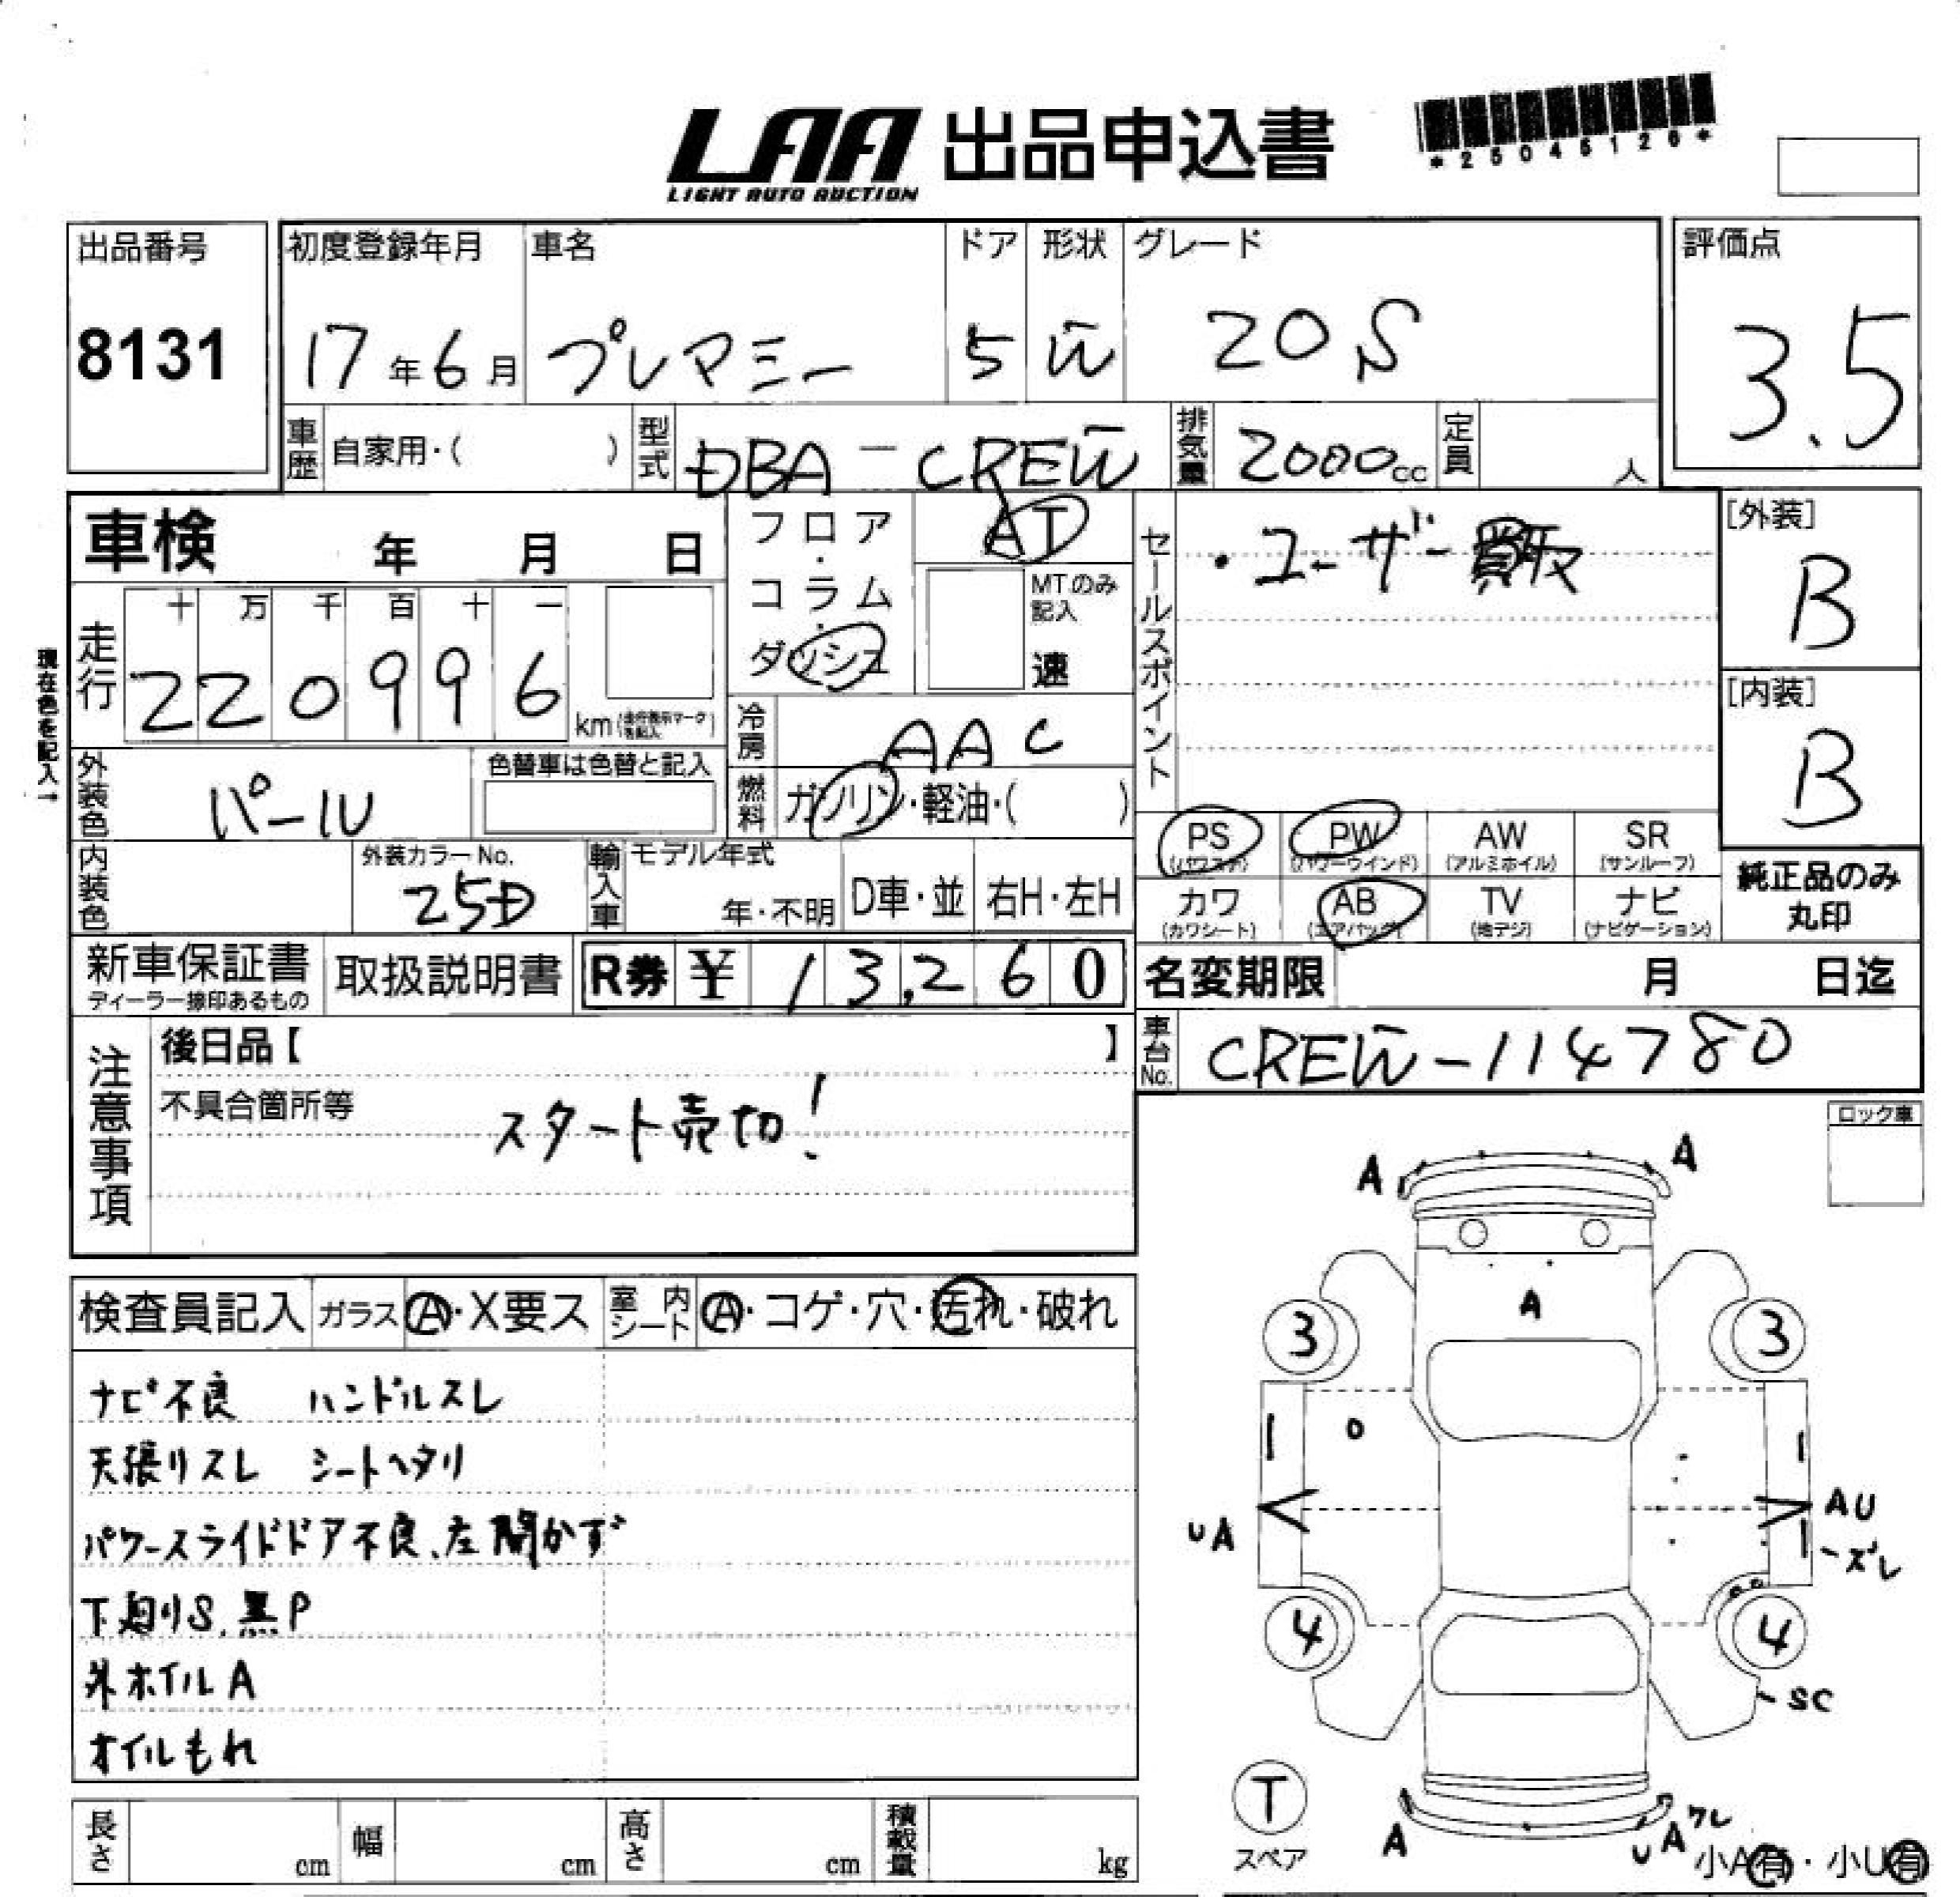 LAA 出品申込書
LIGHT AUTO AUCTION
*25045126*
出品番号
8131
初度登録年月
17年6月
車名
プレマシー
ドア
5
形状
W
グレード
20S
評価点
3.5
車歴 自家用・( )
型式 DBA-CREW
排気量 2000cc
定員 人
車検 年 月 日
フロア・コラム・ダッシュ
AT
MTのみ記入
速
セールスポイント
・ユーザー買取
[外装]
B
[内装]
B
現在色を記入→
走行
十 万 千 百 十 一
220996
km(走行表示マークを記入)
冷房 AAC
外装色 パール
色替車は色替と記入
燃料 ガソリン・軽油・( )
PS (パワステ)
PW (パワーウインド)
AW (アルミホイル)
SR (サンルーフ)
カワ (カワシート)
AB (エアバッグ)
TV (地デジ)
ナビ (ナビゲーション)
純正品のみ丸印
内装色
外装カラーNo.
25D
輸入車
モデル年式
年・不明
D車・並
右H・左H
新車保証書
ディーラー捺印あるもの
取扱説明書
R券 ¥ 13,260
名変期限 月 日迄
車台No. CREW-114780
注意事項
後日品【 】
不具合箇所等
スタート売切!
ロック車
検査員記入 ガラス A・X要ス
室内シート A・コゲ・穴・汚れ・破れ
ナビ不良 ハンドルスレ
天張リスレ シートヘタリ
パワースライドドア不良、左開かず
下廻りS、黒P
外ホイルA
オイルもれ
A
A
A
3
3
UA
AU
ズレ
4
4
SC
T
スペア
A
UA ワレ
小A有・小U有
長さ cm
幅 cm
高さ cm
積載量 kg